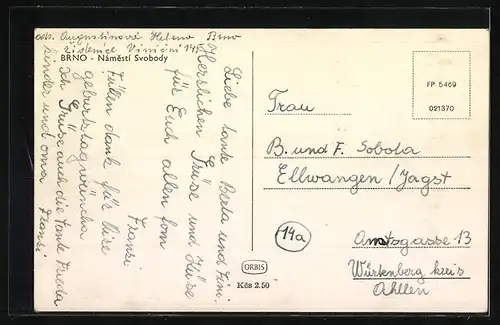 ods. Augustinová Helena Brno
Židenice Viniční 145
BRNO - Náměstí Svobody
Liebe tante Berta und Fini.
Herslichen Grüse und Küse
für Euch allen fom
Fransi
Fülen dank für üire
geburtstagwüncha
Ich Grüse auch die tante Frieda
kinder und oma Fransi
ORBIS
Kčs 2.50
FP 5469
021370
Frau
B. und F. Sobola
Ellwangen/Jagst
14a
Amtsgasse 13
Würtenberg kreis
Ahllen